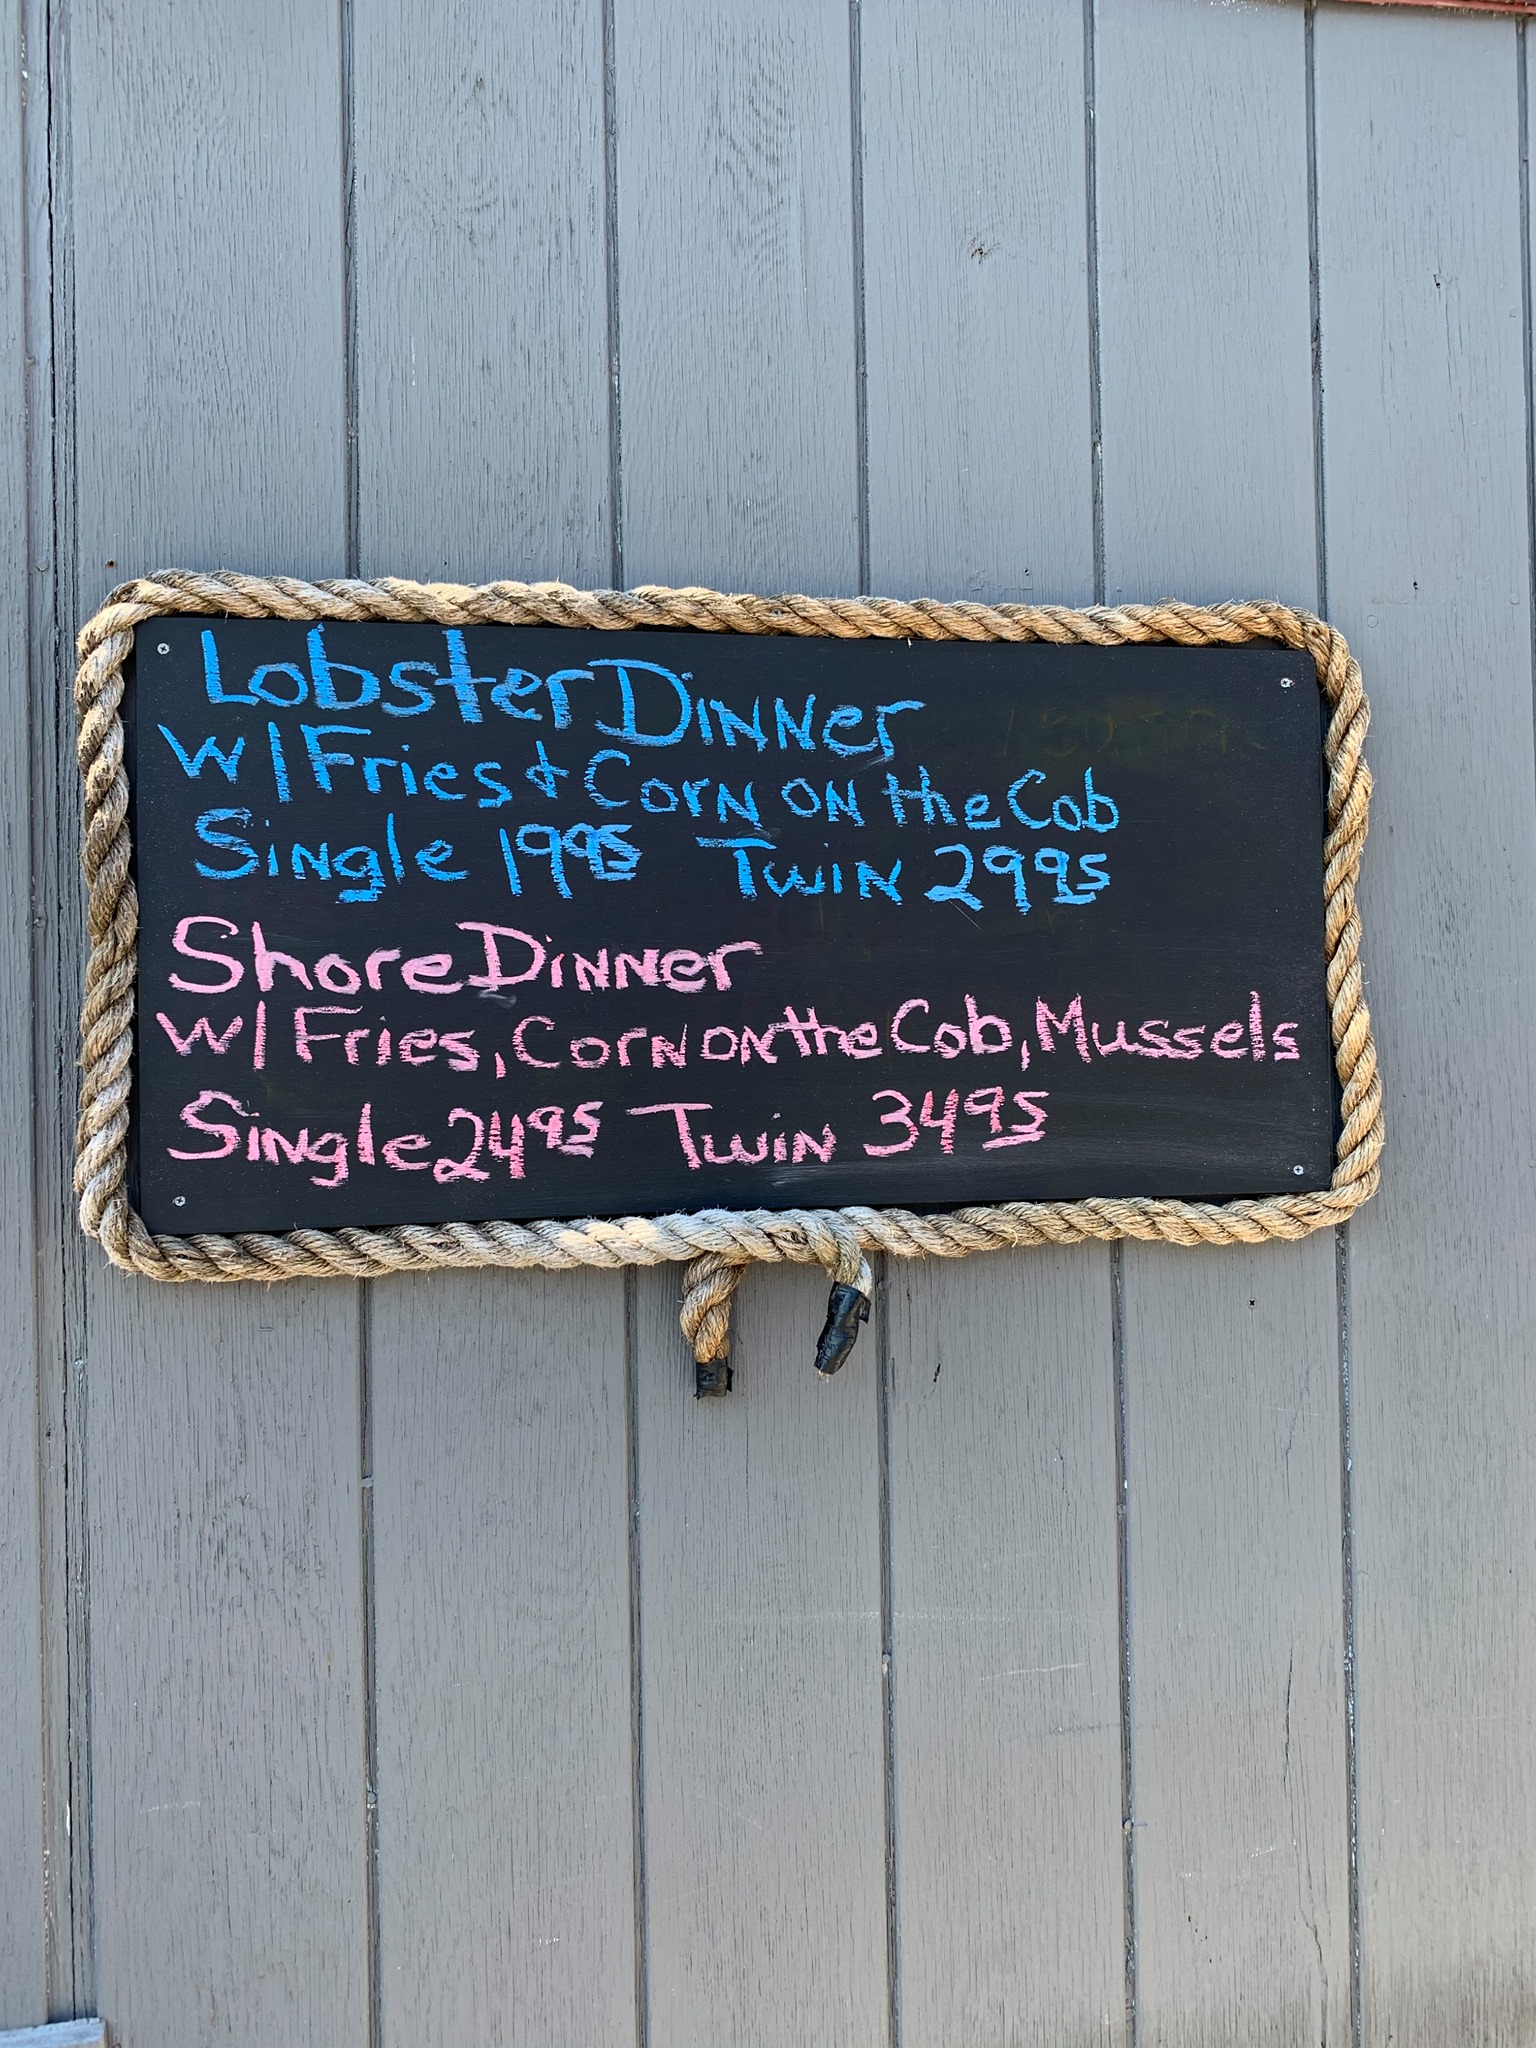 Lobster Dinner
w/ Fries & Corn on the Cob
Single 1995 Twin 2995
Shore Dinner
w/ Fries, Corn on the Cob, Mussels
Single 2495 Twin 3495